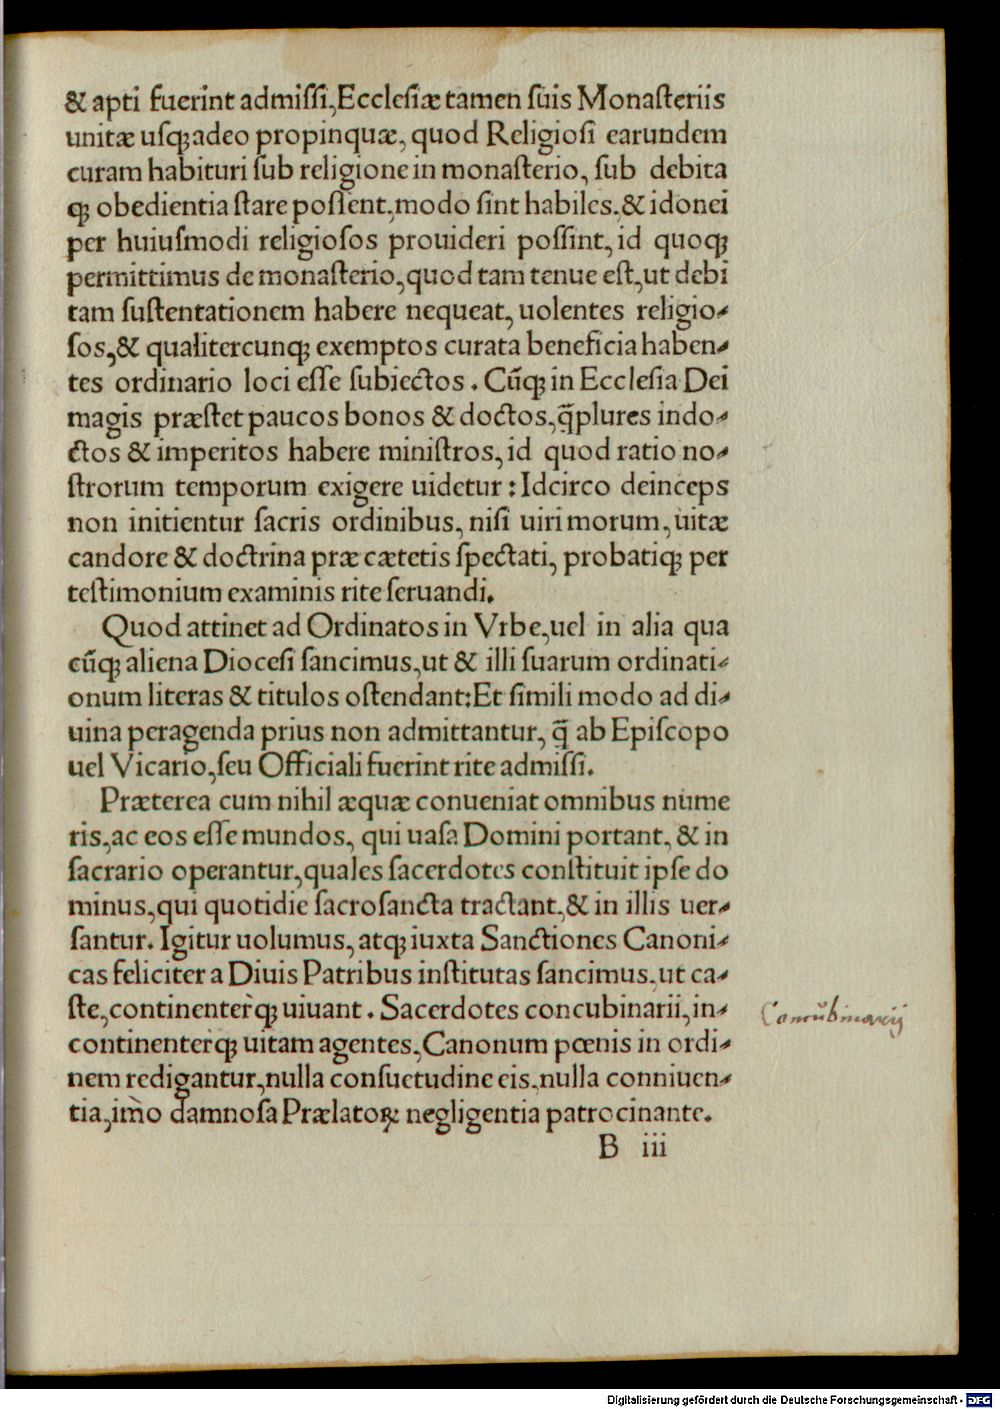 & apti fuerint admiſſi, Eccleſiæ tamen ſuis Monaſteriis
unitæ uſqꝫadeo propinquæ, quod Religioſi earundem
curam habituri ſub religione in monaſterio, ſub debita
qꝫ obedientia ſtare poſſent, modo ſint habiles, & idonei
per huiuſmodi religioſos prouideri poſſint, id quoqꝫ
permittimus de monaſterio, quod tam tenue eſt, ut debi
tam ſuſtentationem habere nequeat, uolentes religio⸗
ſos, & qualitercunqꝫ exemptos curata beneficia haben⸗
tes ordinario loci eſſe ſubiectos. Cūqꝫ in Eccleſia Dei
magis præſtet paucos bonos & doctos, q̃plures indo⸗
ctos & imperitos habere miniſtros, id quod ratio no⸗
ſtrorum temporum exigere uidetur: Idcirco deinceps
non initientur ſacris ordinibus, niſi uiri morum, uitæ
candore & doctrina præ cætetis ſpectati, probatiqꝫ per
teſtimonium examinis rite ſeruandi.
Quod attinet ad Ordinatos in Vrbe, uel in alia qua
cūqꝫ aliena Dioceſi ſancimus, ut & illi ſuarum ordinati⸗
onum literas & titulos oſtendant: Et ſimili modo ad di⸗
uina peragenda prius non admittantur, q̃ ab Epiſcopo
uel Vicario, ſeu Officiali fuerint rite admiſſi.
Præterea cum nihil æquæ conueniat omnibus nume
ris, ac eos eſſe mundos, qui uaſa Domini portant, & in
ſacrario operantur, quales ſacerdotes conſtituit ipſe do
minus, qui quotidie ſacroſancta tractant, & in illis uer⸗
ſantur. Igitur uolumus, atqꝫ iuxta Sanctiones Canoni⸗
cas feliciter a Diuis Patribus inſtitutas ſancimus, ut ca⸗
ſte, continenter̀qꝫ uiuant. Sacerdotes concubinarii, in⸗
continenter̀qꝫ uitam agentes, Canonum pœnis in ordi⸗
nem redigantur, nulla conſuetudine eis, nulla conniuen⸗
tia, im̀o damnoſa Prælatoꝝ negligentia patrocinante.
Concubinarij
B iii
Digitalisierung gefördert durch die Deutsche Forschungsgemeinschaft - DFG